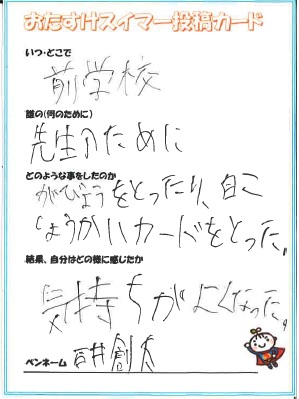 おたすけスイマー投稿カード
いつ・どこで
前学校
誰の(何のために)
先生のために
どのような事をしたのか
がびょうをとったり、自こ
しょうかいカードをとった。
結果、自分はどの様に感じたか
気持ちがよくなった。
ペンネーム 石井創太